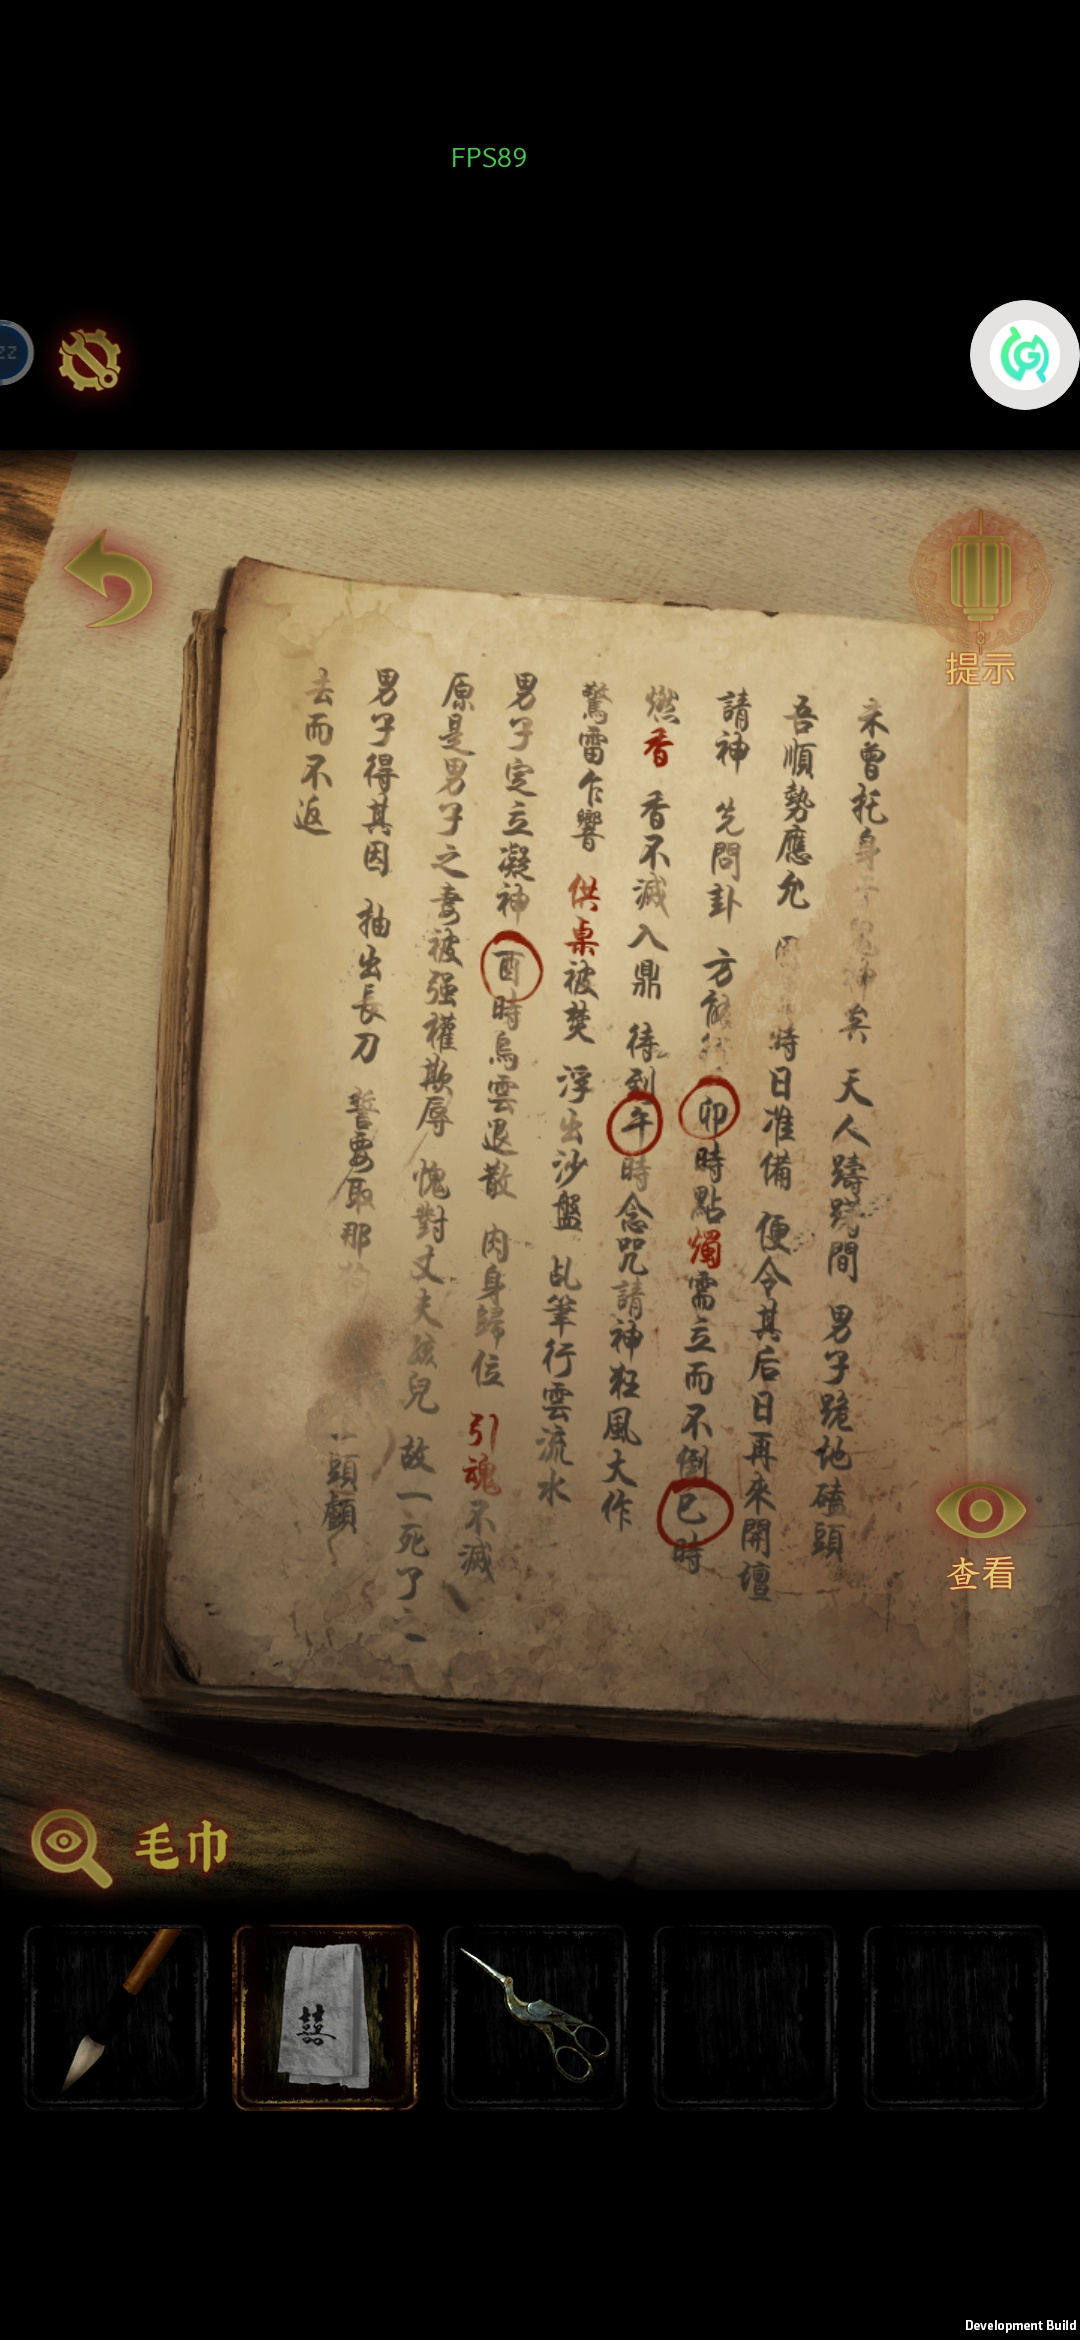 FPS89
提示
未曾托身
矣 天人躊躇間 男子跪地磕頭
吾順勢應允
時日准備 便令其后日再來開壇
請神 先問卦 方能
卯時點燭需立而不倒巳時
燃香 香不滅入鼎 待到午時念咒請神狂風大作
驚雷乍響 供桌被焚 浮出沙盤 乩筆行雲流水
男子定立凝神 酉時烏雲退散 肉身歸位 引魂不滅
原是男子之妻被强權欺辱 愧對丈夫孩兒 故一死了之
男子得其因 抽出長刀 誓要取那
頭顱
去而不返
查看
毛巾
囍
Development Build